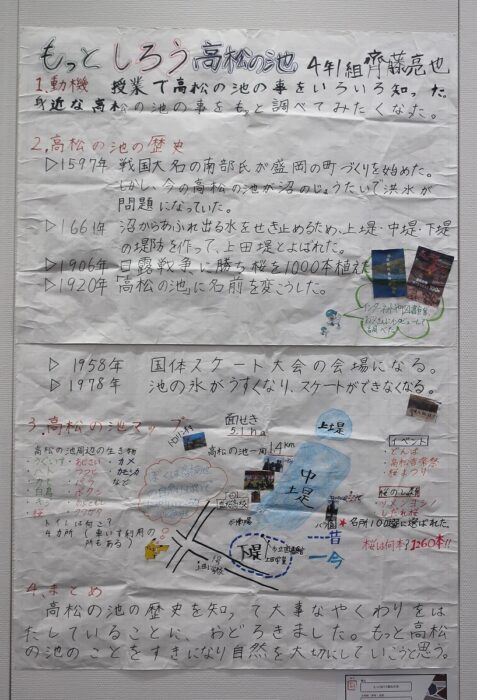 もっと しろう 高松の池 4年1組 齊藤亮也
1.動機 授業で高松の池の事をいろいろ知った。
身近な高松の池の事をもっと調べてみたくなった。
2.高松の池の歴史
▷1597年 戦国大名の南部氏が盛岡の町づくりを始めた。
しかし、今の高松の池が沼のじょうたいで洪水が
問題になっていた。
▷1661年 沼からあふれ出る水をせき止めるため、上堤・中堤・下堤
の堤防を作って、上田堤とよばれた。
▷1906年 日露戦争に勝ち桜を1000本植えた
▷1920年 「高松の池」に名前を変こうした。
▷1958年 国体スケート大会の会場になる。
▷1978年 池の氷がうすくなり、スケートができなくなる。
3.高松の池マップ
面せき
高松の池一周 1.4km
上堤
中堤
下堤
高松の池周辺の生き物
カメ
など
トイレは何こ?
4カ所
イベント
どんど
桜まつり
しだれ桜
★名所100選に選ばれた。
桜は何本?1260本!!
昔
今
4.まとめ
高松の池の歴史を知って大事なやくわりをは
たしていることに、おどろきました。もっと高松
の池のことをすきになり自然を大切にしていこうと思う。